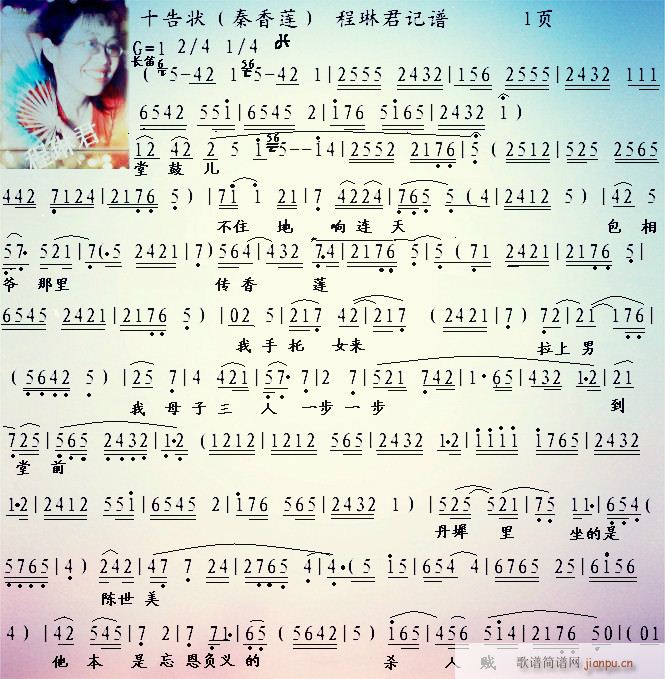 十告状（秦香莲） 程琳君记谱 1页
G=1 2/4 1/4 サ
长笛
（5-42 1 5-42 1|2555 2432|156 2555|2432 111
6542 551|6545 2|176 5165|2432 1）
12 42 2 5 1 5--14|2552 2176 5|2512|525 2565
堂鼓儿
442 7124|2176 5）|71 1 21|7 4224|765 5（4|2412 5）|42 5
不住 地 响连天 包相
57 521|7（5 2421|7）564|432 74|2176 5|5（71 2421|2176 5
爷 那里 传香 莲
6545 2421|2176 5）|02 5|217 42|217 （2421|217 5）|72 21 176|
我手托 女来 拉上男
（5642 5）|25 7|4 421|57 7|2 7|521 742|1 65|432 12|21
我母子三人一步一步 到
725|565 2432|12 （1212|1212 565|2432 12|1111 1765|2432
堂前
12|2412 551|6545 2|176 565|2432 1）|525 521|75 11|654（
丹墀里 坐的是
5765|4）242|47 7 24 4|4（5 15|654 4|6765 245|6156
陈世美
4）|42 545|7 2|7 71|65 （5642 5）|165|456 514|2176 50|（01
他本是忘恩负义的 杀人贼
程琳君
歌谱简谱网 jianpu.cn